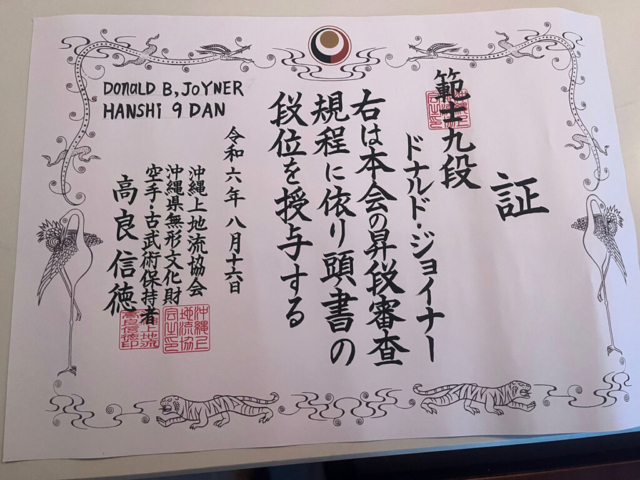 証
範士九段
ドナルド・ジョイナー
右は本会の昇段審査
規程に依り頭書の
段位を授与する
令和六年八月十六日
沖縄上地流協会
沖縄県無形文化財
空手・古武術保持者
高良信徳
DONALD B, JOYNER
HANSHI 9 DAN